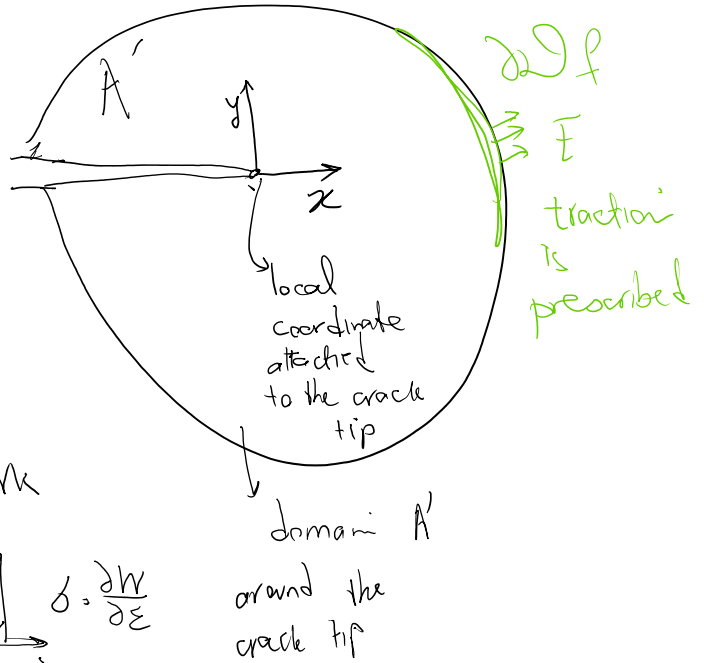 A'
∂Ω f
y
x
traction
is
prescribed
local
coordinate
attached
to the crack
tip
domain A'
around the
crack tip
σ = ∂W/∂ε